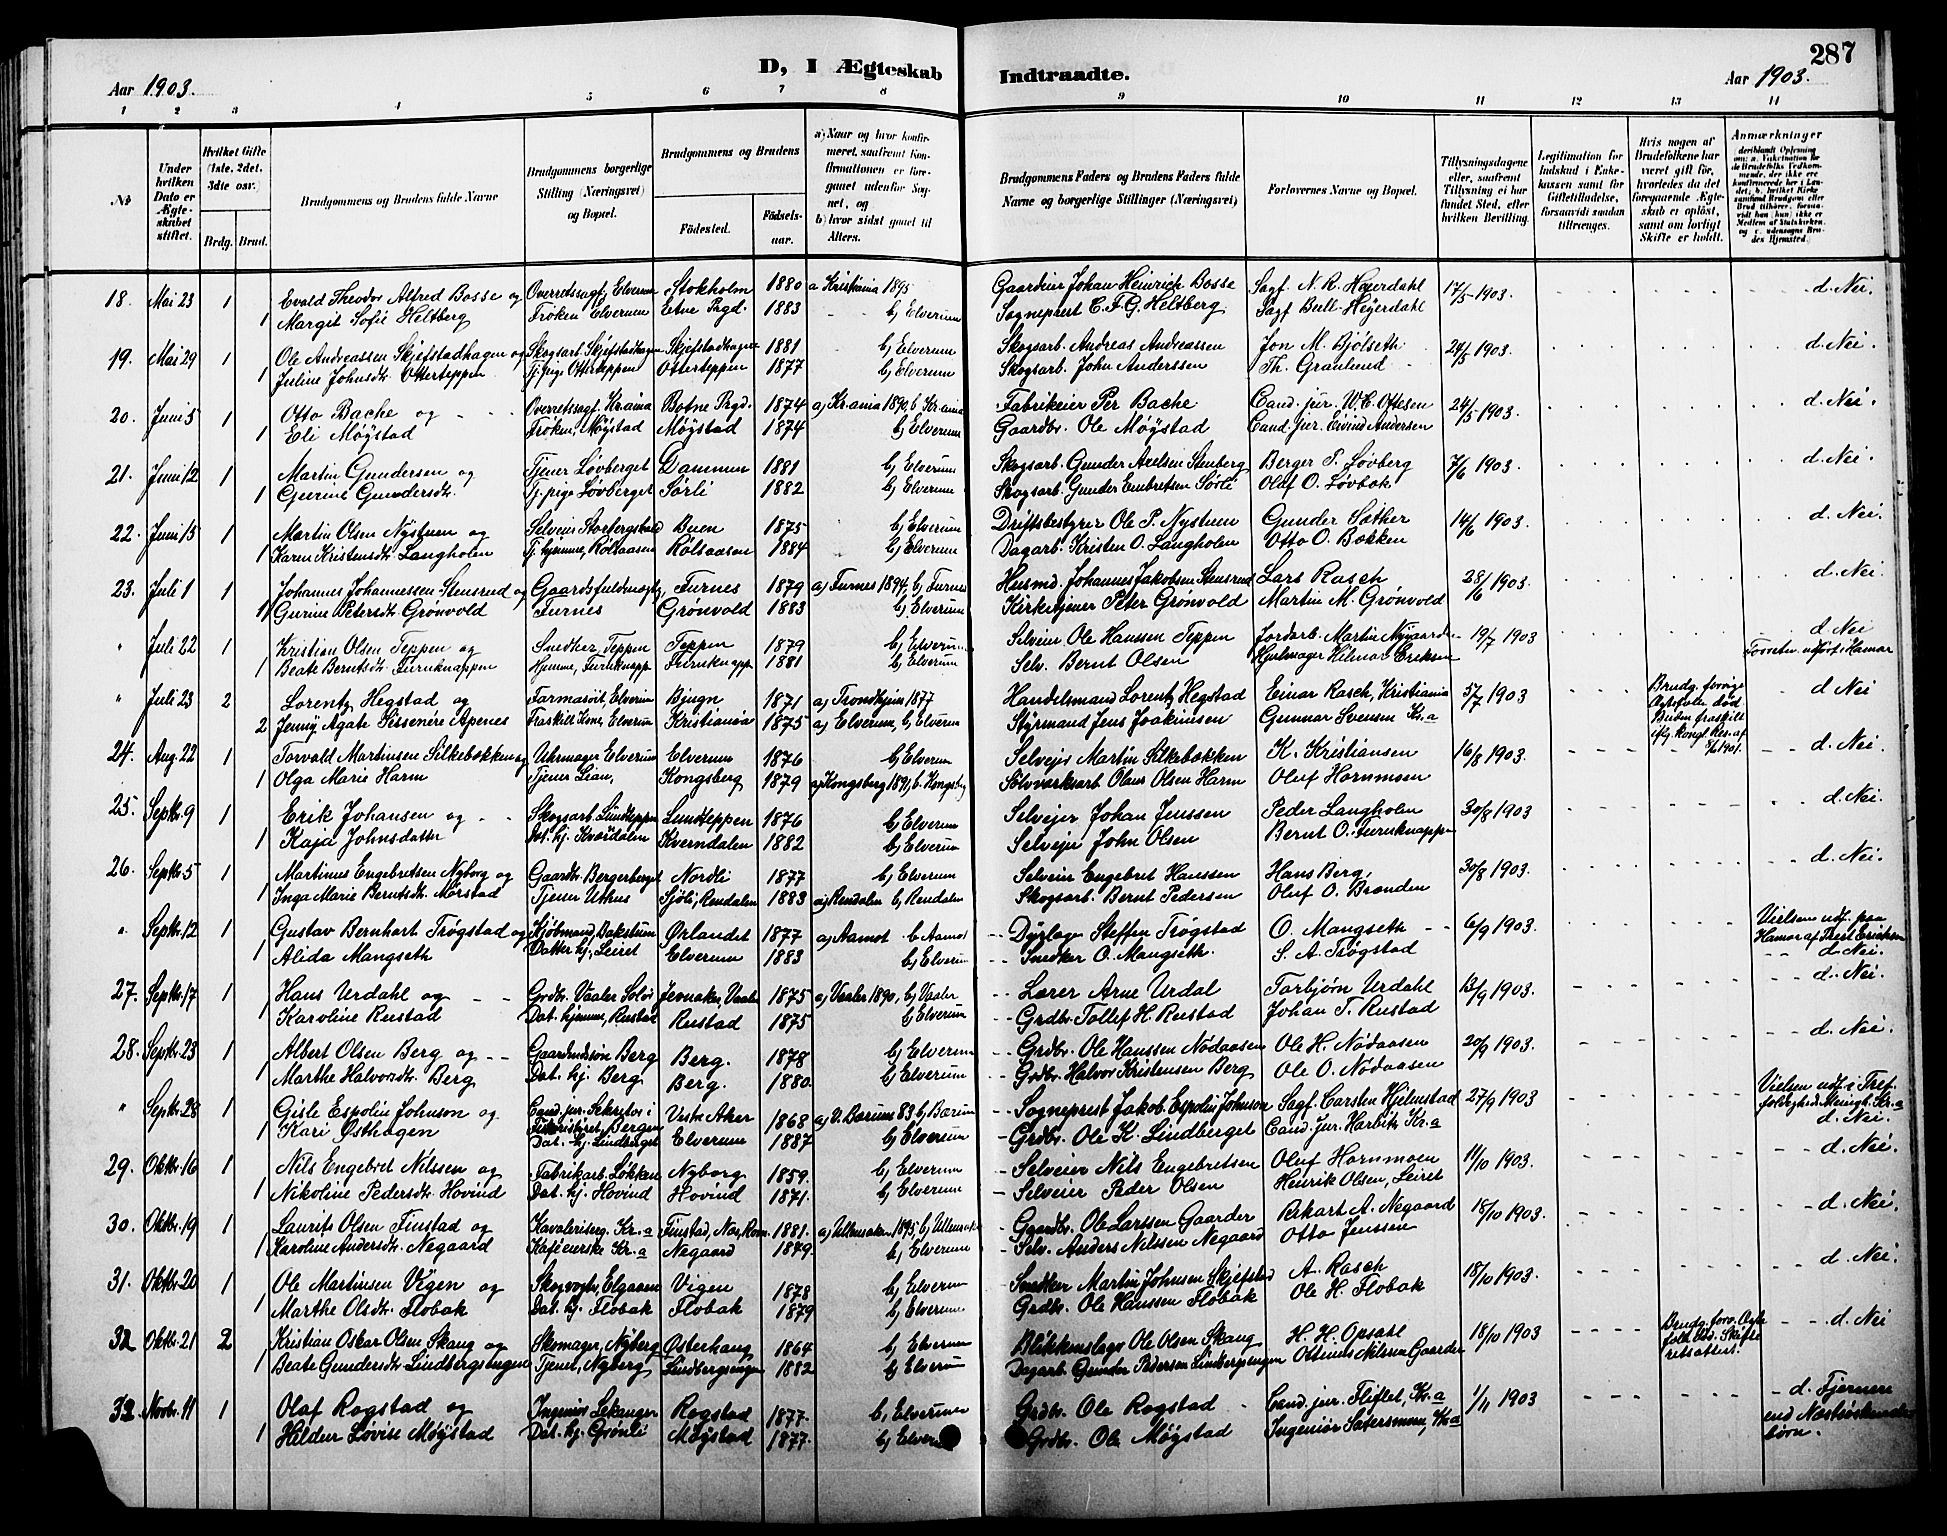 287
Aar 1903.
D, I Ægteskab Indtraadte.
Aar 1903.
1 2 3 4 5 6 7 8 9 10 11 12 13 14
No
Under hvilken Dato er Ægteskabet stiftet.
Hvilket Gifte (1ste, 2det, 3die osv.)
Brdg. Brud.
Brudgommens og Brudens fulde Navne
Brudgommens borgerlige Stilling (Næringsvei) og Bopæl.
Brudgommens og Brudens
Födested.
Födselsaar.
a) Naar og hvor konfirmeret, saafremt Konfirmationen er foregaaet udenfor Sognet, og
b) hvor sidst gaaet til Alters.
Brudgommens Faders og Brudens Faders fulde Navne og borgerlige Stillinger (Næringsvei)
Forlovernes Navne og Bopæl.
Tillysningsdagene eller, saafremt Tillysning ei har fundet Sted, efter hvilken Bevilling.
Legitimation for Indskud i Enkekassen samt for Giftetilladelse, forsaavidt saadan tiltrænges.
Hvis nogen af Brudefolkene har været gift för, hvorledes da det foregaaende Ægteskab er oplöst, samt om lovligt Skifte er holdt.
Anmærkninger
18. Mai 23 1 Evald Theodor Alfred Bosse og Overretssagf. Elverum Stokholm 1880 a Kristiania 1895 Gaardeier Johan Heinrich Bosse Sagf. N. R. Heyerdahl 17/5 1903. d. Nei.
1 Margit Sofie Heltberg Frøken Elverum Etne Prgd. 1883 b) Elverum Sogneprest C. F. G. Heltberg Sagf Bull-Heyerdahl
19. Mai 29 1 Ole Andreassen Skjefstadhagen og Skogsarb. Skjefstadhagen Skjefstadhagen 1881 b) Elverum Skogsarb. Andreas Andreassen Jon M. Bjølseth 24/5 1903. d. Nei.
1 Juline Johnsdtr. Otterteppen Tj. pige Otterteppen Otterteppen 1877 b) Elverum Skogsarb. John Anderssen Th. Granlund
20. Juni 5 1 Otto Bache og Overretssagf. Kr.ania Botne Prgd. 1874 a) Kr.ania 1890, b. Kr.ania Fabrikeier Per Bache Cand. jur. W. C. Ottesen 24/5 1903. d. Nei.
1 Eli Møystad Frøken, Møystad Møystad 1874 b) Elverum Gaardbr. Ole Møystad Cand. jur. Eivind Andersen
21. Juni 12 1 Martin Gundersen og Tjener Løvberget Dammen 1881 b) Elverum Skogsarb. Gunder Axelsen Stenberg Berger P. Løvberg 7/6 1903. d. Nei.
1 Gurine Gundersdtr. Tj. pige Løvberget Sørli 1882 b) Elverum Skogsarb. Gunder Embretsen Sørli Oluf O. Løvbak
22. Juni 15 1 Martin Olsen Nystuen og Selveier Storbergstad Buen 1875 b) Elverum Driftsbestyrer Ole P. Nystuen Gunder Sæther 14/6 1903. d. Nei.
1 Karen Kristensdtr. Langholen Tj. hjemme, Rølsaasen Rølsaasen 1884 b) Elverum Dagarb. Kristen O. Langholen Otto O. Bakken
23. Juli 1 1 Johannes Johannessen Stensrud og Gaardsfuldmægtig Furnes 1879 a) Furnes 1894, b) Furnes Husmd. Johannes Jakobsen Stensrud Lars Rasch 28/6 1903. d. Nei.
1 Gurine Petersdtr. Grønvold Furnes Grønvold 1883 b) Elverum Kirketjener Peter Grønvold Martin M. Grønvold
" Juli 22 1 Kristian Olsen Teppen og Snedker, Teppen Teppen 1879 b) Elverum Selveier Ole Hanssen Teppen Jordarb. Martin Nygaarden 19/7 1903 d. Nei
1 Beate Berntsdtr. Furuknappen Hjemme, Furuknapp. Furuknapp. 1881 b) Elverum Selv. Bernt Olsen Hjulmager Hilmar Eriksen Forretn. udført i Hamar
" Juli 23 2 Lorentz Hegstad og Farmasøit, Elverum Bjugn 1871 a) Trondhjem 1877 Handelsmand Lorentz Hegstad Einar Rasch, Kristiania 5/7 1903 Brudg. forrige Ægtefolle død d. Nei
2 Jenny Agate Sissenere Apenes Fraskilt Kone, Elverum Kristiania 1875 a) Elverum, b) Elverum Styrmand Jens Joakimsen Gunnar Svensen Kr.a Bruden fraskilt ifg. kongl. Res. af 1901.
24. Aug. 22 1 Torvald Martinsen Silkebækken og Uhrmager Elverum Elverum 1876 b) Elverum Selveier Martin Silkebækken K. Kristiansen 16/8 1903. d. Nei.
1 Olga Marie Harm Tjener Lian, Kongsberg 1879 a) Kongsberg 1894, b. Kongsberg Sølvværksarb. Olaus Olsen Harm Oluf Hornmoen
25. Septbr. 9 1 Erik Johansen og Skogsarb. Lundteppen Lundteppen 1876 b) Elverum Selveier Johan Jenssen Peder Langholen 30/8 1903 d. Nei.
1 Kaja Johnsdatter Dat. hj. Kværdalen Kverndalen 1882 b) Elverum Selveier John Olsen Bernt O. Furuknappen
26. Septbr. 5 1 Martinus Engebretsen Nyborg og Gaardbr. Bergerberget Nordli 1877 b) Elverum Selveier Engebret Hanssen Hans Berg, 30/8 1903. d. Nei.
1 Inga Marie Berntsdtr. Mørstad Tjener Uthus Sjøli, Rendalen 1883 a) Rendalen b) Rendalen Skogsarb. Bernt Pedersen Oluf O. Brænden
" Septbr. 12 1 Gustav Bernhart Trøgstad og Kjøbmand, Bakstuen Ørlandet 1877 a) Aamot b. Aamot Dyrlæge Steffen Trøgstad O. Mangseth 6/9 1903. Vielsen udf. paa Hamar af Prest Eriksen
1 Alida Mangseth Datter hj. Leiret Elverum 1883 b) Elverum Snedker O. Mangseth. S. A. Trøgstad d. Nei.
27. Septbr. 17 1 Hans Urdahl og Grdbr. Vaaler Solør Jevnaker, Vaaler 1875 a) Vaaler 1890, b) Vaaler Lærer Arne Urdal Torbjørn Urdahl 13/9 1903. d. Nei.
1 Karoline Rustad Dat. hjemme, Rustad Rustad 1875 b) Elverum Grdbr. Tollef H. Rustad Johan T. Rustad
28. Septbr. 23 1 Albert Olsen Berg og Gaardmdsøn Berg Berg. 1878 b) Elverum Grdbr. Ole Hanssen Nødaasen Ole H. Nødaasen 20/9 1903. d. Nei.
1 Marthe Halvorsdtr. Berg Dat. hj. Berg Berg. 1880 b) Elverum Grdbr. Halvor Kristensen Berg Ole O. Nødaasen
" Septbr. 28 1 Gisle Espolin Johnson og Cand. jur. Sekretær i Vestre Aker 1868 a) V. Bærum 83 b) Bærum Sogneprest Jakob Espolin Johnson Sagf. Carsten Hjelmstad 27/9 1903 Vielsen udf. i Trefoldighed Menigh. Kr.a
1 Kari Østhagen Dat. hj. Lindberget Elverum 1887 b) Elverum Grdbr. Ole K. Lindberget Cand. jur. Harbitz Kr.a d. Nei.
29. Oktbr. 16 1 Nils Engebret Nilssen og Fabrikarb. Løkken Nyborg 1859. b) Elverum Selveier Nils Engebretsen Oluf Hornmoen 11/10 1903. d. Nei.
1 Nikoline Pedersdtr. Hovind Dat. hj. Hovind Hovind 1871. b) Elverum Selveier Peder Olsen Henrik Olsen, Leiret
30. Oktbr. 19 1 Laurits Olsen Finstad og Kavaleriserg. Kr.a Finstad, Næs, Rom. 1881. a) Ullensaker 1895 b) Ullensaker Gaardbr. Ole Larssen Gaarder Rikart A. Negaard 18/10 1903. d. Nei.
1 Karoline Andersdtr. Negaard Kafeeierske Kr.a Negaard 1879. b) Elverum Selv. Anders Nilssen Negaard Otto Jenssen
31. Oktbr. 20 1 Ole Martinsen Vigen og Skogvogter, Elgaaen Vigen 1878 b) Elverum Snedker Martin Johnsen Skjefstad A. Rasch 18/10 1903. d. Nei.
1 Marthe Olsdtr. Flobak Dat. hj. Flobak Flobak 1879 b) Elverum Grdbr. Ole Hanssen Flobak Ole H. Flobak
32 Oktbr. 21 2 Kristian Oskar Olsen Skaug og Skomager, Nyberg Østerhaug 1864 b) Elverum Blikkenslager Ole Olsen Skaug H. H. Opsahl 18/10 1903 Brudg. forr. Ægtefolle død. Skifteretsattest. d. Nei
1 Beate Gundersdtr. Lindbergsengen Tjener, Nyberg Lindbergsengen 1882 b) Elverum Dagarb. Gunder Pedersen Lindbergsengen Ottinus Nilssen Gaarder
33 Novbr. 11 1 Olaf Rogstad og Ingeniør Lekanger Rogstad 1877. b) Elverum Grdbr. Ole Rogstad Cand. jur. Fliflet, Kr.a 1/11 1903 d. Fjernere end Næstsøskendebørn.
1 Hildur Lovise Møystad Dat. hj. Grønli Møystad 1877. b) Elverum Grdbr. Ole Møystad Ingeniør Sætersmoen, Kr.a